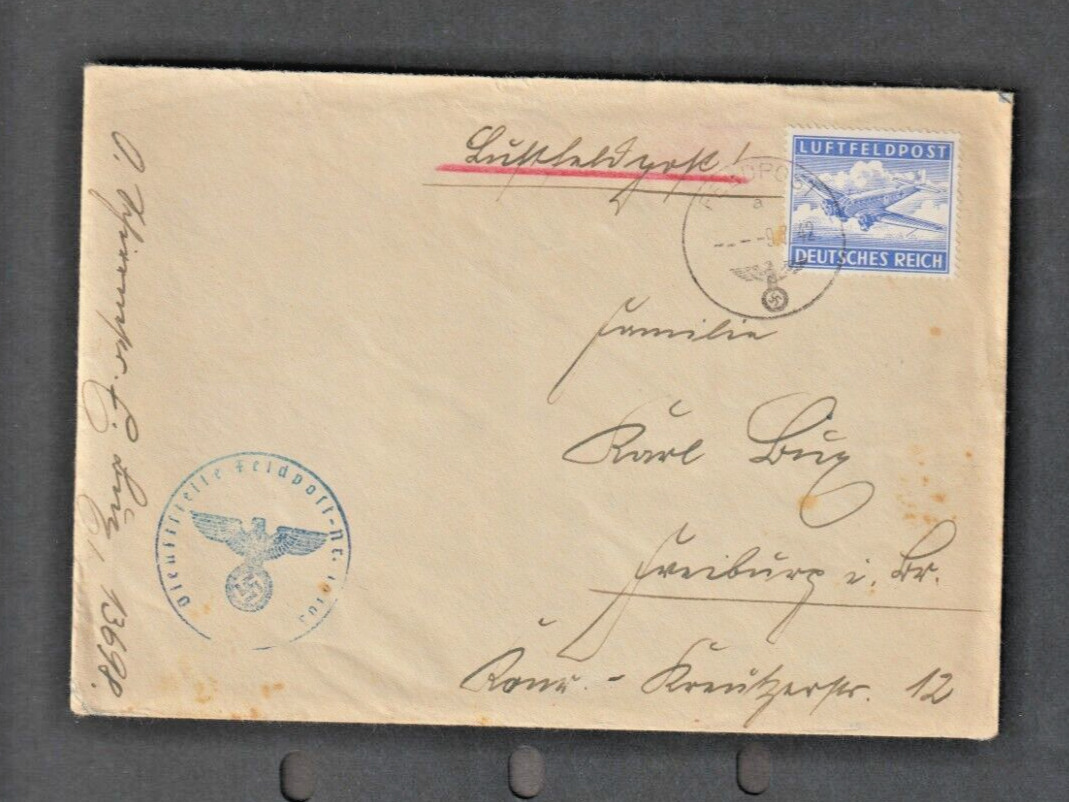 Luftfeldpost!
LUFTFELDPOST
DEUTSCHES REICH
FELDPOST
a
----9 42
Familie
Karl Bug
Freiburg i. Br.
Konr.-Kreutzerstr. 12
Dienststelle Feldpost-Nr.
13698.